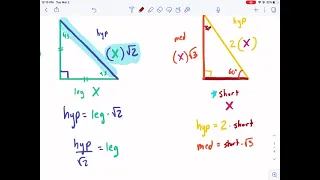 45
hyp
(X)√2
45
leg X
hyp = leg · √2
hyp/√2 = leg
hyp
med
(X)√3
2(X)
60°
short
X
hyp = 2 · short
med = short · √3